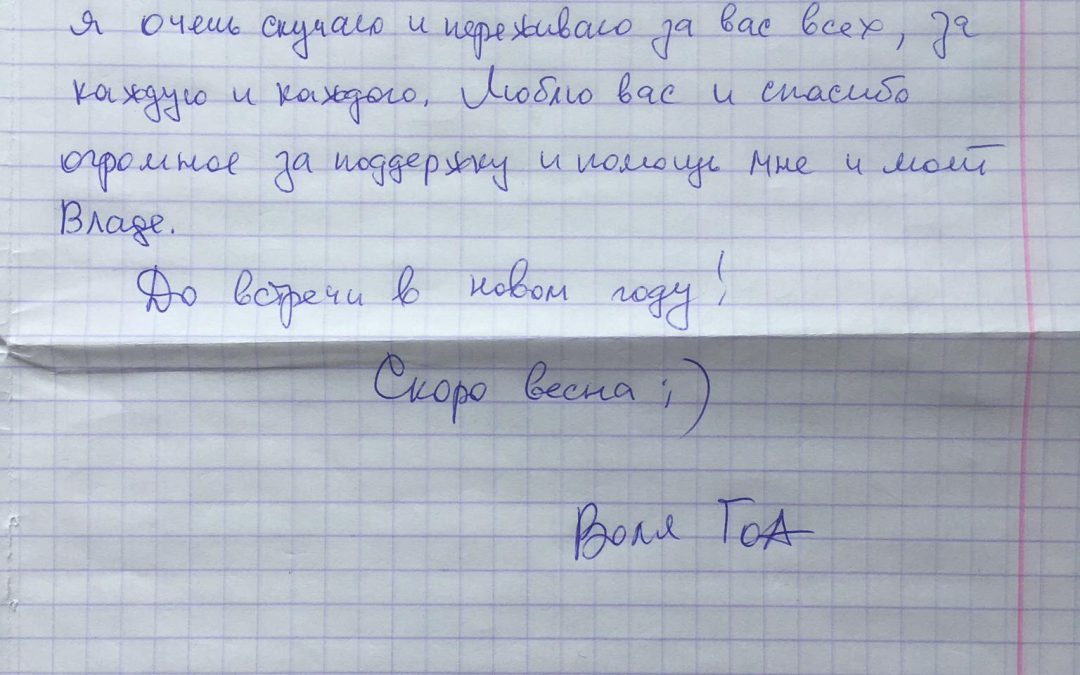 я очень скучаю и переживаю за вас всех, за
каждую и каждого. Люблю вас и спасибо
огромное за поддержку и помощь мне и моей
Владе.
До встречи в новом году!
Скоро весна ;)
Воля ГоА